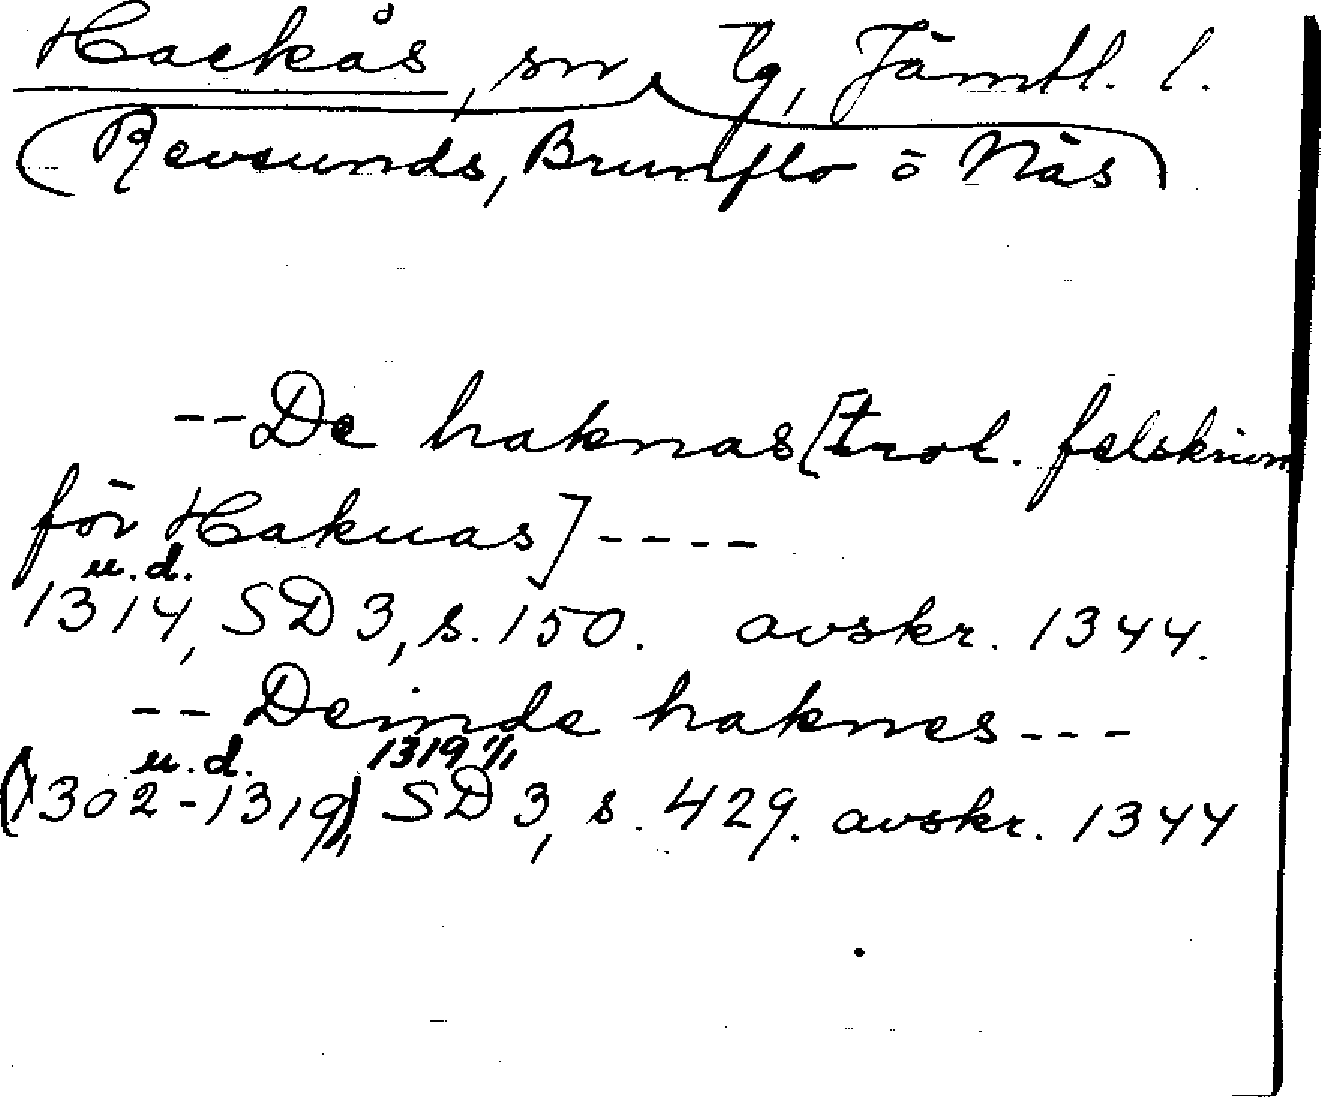 Hackås, sn Tg, Jämtl. l.
(Revsunds, Brunflo o Näs)
-- De haknas [trol. felskrivn
för Hakuas] ----
u.d.
1314, SD 3, s. 150. avskr. 1344.
-- Deinde haknes ---
u.d. 1319 1/1
(1302-1319), SD 3, s. 429. avskr. 1344